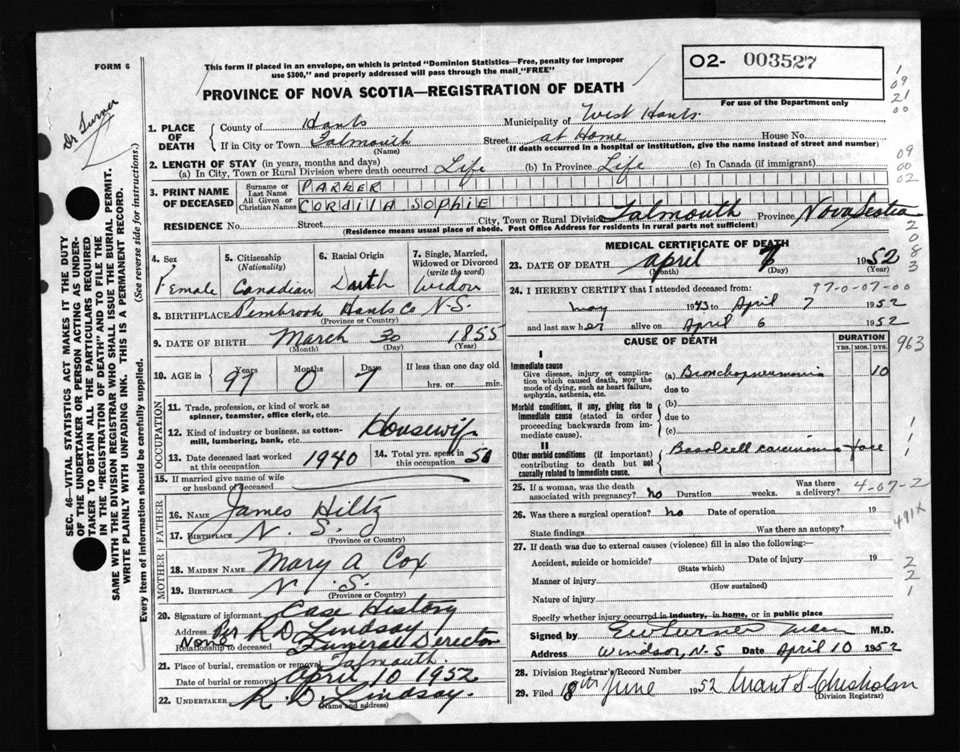 FORM 6
This form if placed in an envelope, on which is printed "Dominion Statistics—Free, penalty for improper
use $300," and properly addressed will pass through the mail "FREE"
O2- 003527
For use of the Department only
PROVINCE OF NOVA SCOTIA—REGISTRATION OF DEATH
Dr Turner
1. PLACE OF DEATH County of Hants Municipality of West Hants
If in City or Town Falmouth (Name) Street at Home House No.
(If death occurred in a hospital or institution, give the name instead of street and number)
2. LENGTH OF STAY (in years, months and days)
(a) In City, Town or Rural Division where death occurred Life (b) In Province Life (c) In Canada (if immigrant)
3. PRINT NAME OF DECEASED Surname or Last Name PARKER
All Given or Christian Names CORDILIA SOPHIE
RESIDENCE No. Street City, Town or Rural Division Falmouth Province Nova Scotia
(Residence means usual place of abode. Post Office Address for residents in rural parts not sufficient)
4. Sex Female
5. Citizenship (Nationality) Canadian
6. Racial Origin Dutch
7. Single, Married, Widowed or Divorced (write the word) Widow
8. BIRTHPLACE Pembrook Hants Co N.S.
(Province or Country)
9. DATE OF BIRTH March 30 1855
(Month) (Day) (Year)
10. AGE in Years 97 Months 0 Days 7 If less than one day old hrs. or min.
OCCUPATION
11. Trade, profession, or kind of work as spinner, teamster, office clerk, etc.
12. Kind of industry or business, as cotton-mill, lumbering, bank, etc. Housewife
13. Date deceased last worked at this occupation 1940 14. Total yrs. spent in this occupation 50
15. If married give name of wife or husband of deceased
FATHER
16. NAME James Hiltz
17. BIRTHPLACE N.S.
(Province or Country)
MOTHER
18. MAIDEN NAME Mary A Cox
19. BIRTHPLACE N.S.
(Province or Country)
20. Signature of informant Case History
Address Per R D Lindsay
Relationship to deceased None Funeral Director
21. Place of burial, cremation or removal Falmouth
Date of burial or removal April 10 1952
22. UNDERTAKER R. D. Lindsay.
(Name and address)
MEDICAL CERTIFICATE OF DEATH
23. DATE OF DEATH April 7 1952
(Month) (Day) (Year)
24. I HEREBY CERTIFY that I attended deceased from: 97-0-07-00
May 1943 to April 7 1952
and last saw her alive on April 6 1952
CAUSE OF DEATH
DURATION
YRS. MOS. DYS.
963
I
Immediate cause
Give disease, injury or complication which caused death, NOT the mode of dying, such as heart failure, asphyxia, asthenia, etc.
(a) Bronchopneumonia 10
due to
Morbid conditions, if any, giving rise to immediate cause (stated in order proceeding backwards from immediate cause).
(b)
due to
(c)
II
Other morbid conditions (if important) contributing to death but not causally related to immediate cause.
Basal cell carcinoma face
25. If a woman, was the death associated with pregnancy? no Duration weeks. Was there a delivery? 4-07-2
26. Was there a surgical operation? no Date of operation 19
491X
State findings Was there an autopsy?
27. If death was due to external causes (violence) fill in also the following:—
Accident, suicide or homicide? Date of injury 19
(State which)
Manner of injury
(How sustained)
Nature of injury
Specify whether injury occurred in industry, in home, or in public place
Signed by Turner M.D.
Address Windsor, N.S Date April 10 1952
28. Division Registrar's Record Number
29. Filed 18th June 1952 Grant S. Chisholm
(Division Registrar)
SEC. 46—VITAL STATISTICS ACT MAKES IT THE DUTY
OF THE UNDERTAKER OR PERSON ACTING AS UNDERTAKER TO OBTAIN ALL THE PARTICULARS REQUIRED
IN THE "REGISTRATION OF DEATH" AND TO FILE THE
SAME WITH THE DIVISION REGISTRAR WHO SHALL ISSUE THE BURIAL PERMIT.
WRITE PLAINLY WITH UNFADING INK. THIS IS A PERMANENT RECORD.
Every item of information should be carefully supplied. (See reverse side for instructions.)